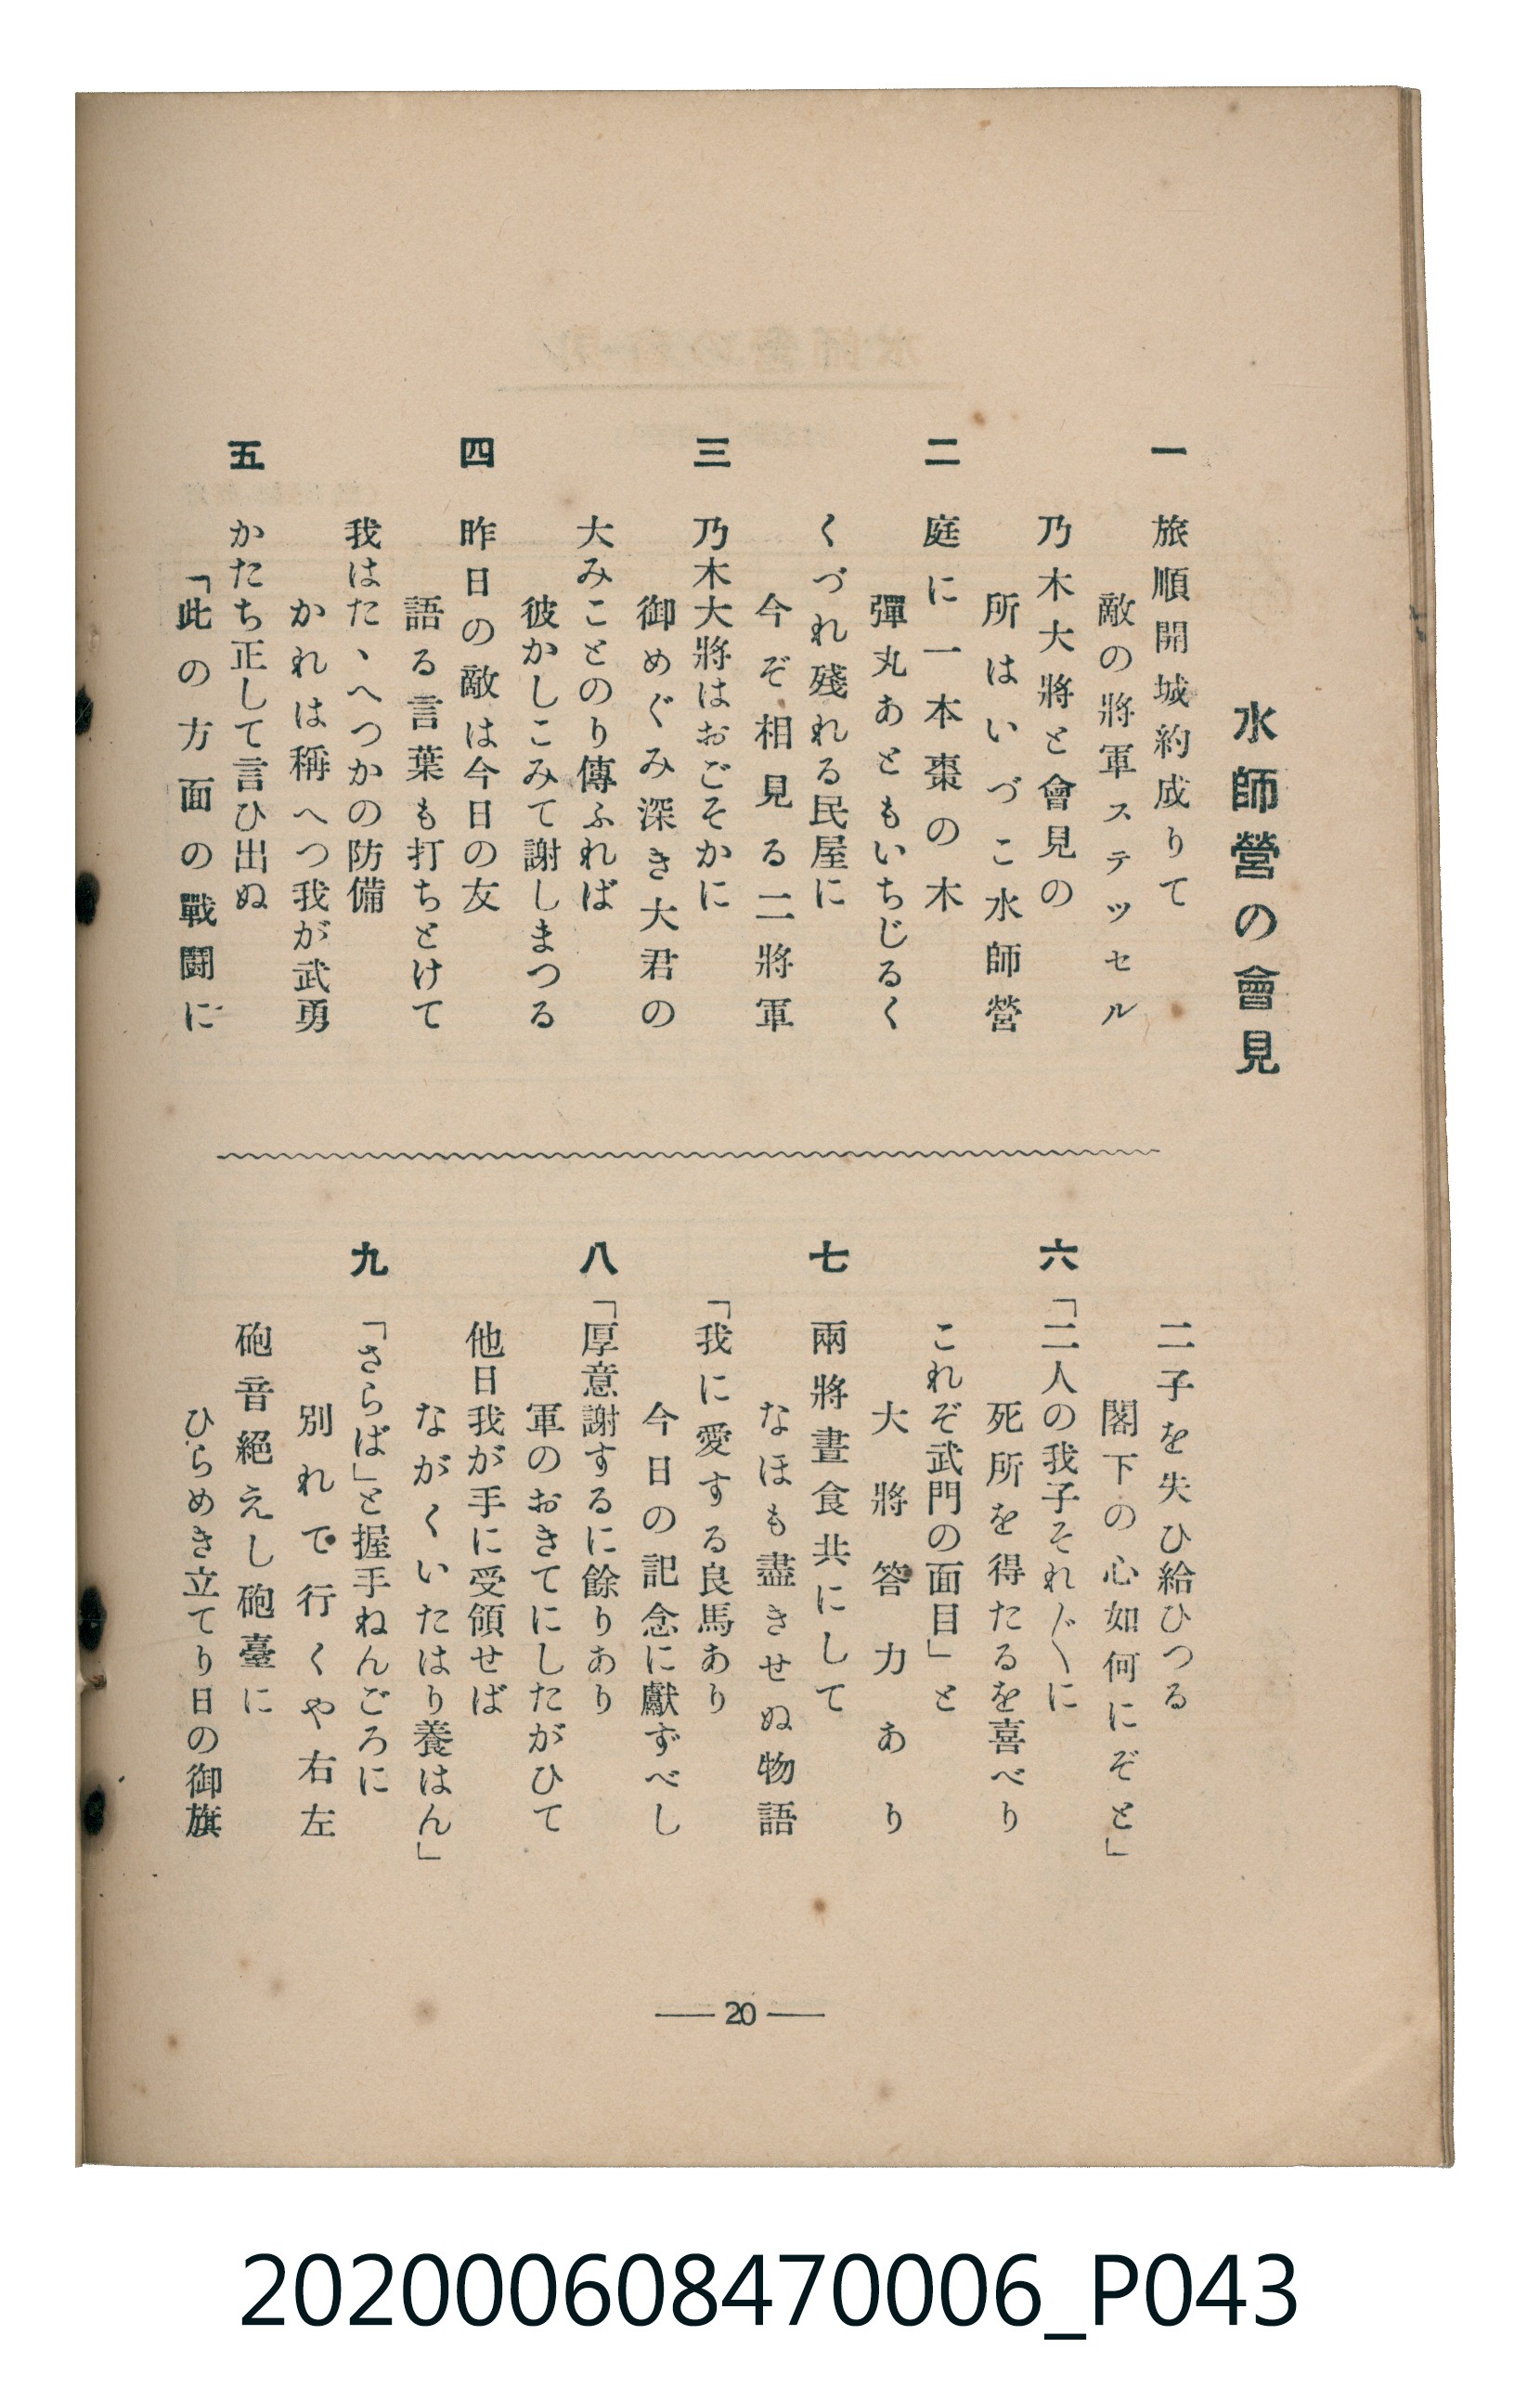 水師營の會見
一 旅順開城約成りて
敵の將軍ステツセル
乃木大將と會見の
所はいづこ水師營
二 庭に一本棗の木
彈丸あともいちじるく
くづれ殘れる民屋に
今ぞ相見る二將軍
三 乃木大將はおごそかに
御めぐみ深き大君の
大みことのり傳ふれば
彼かしこみて謝しまつる
四 昨日の敵は今日の友
語る言葉も打ちとけて
我はたゝへつかの防備
かれは稱へつ我が武勇
五 かたち正して言ひ出ぬ
「此の方面の戰鬪に
二子を失ひ給ひつる
閣下の心如何にぞと」
六 「二人の我子それ〲に
死所を得たるを喜べり
これぞ武門の面目」と
大將答力あり
七 兩將晝食共にして
なほも盡きせぬ物語
「我に愛する良馬あり
今日の記念に獻ずべし
八 「厚意謝するに餘りあり
軍のおきてにしたがひて
他日我が手に受領せば
ながくいたはり養はん」
九 「さらば」と握手ねんごろに
別れて行くや右左
砲音絕えし砲臺に
ひらめき立てり日の御旗
20
202000608470006_P043